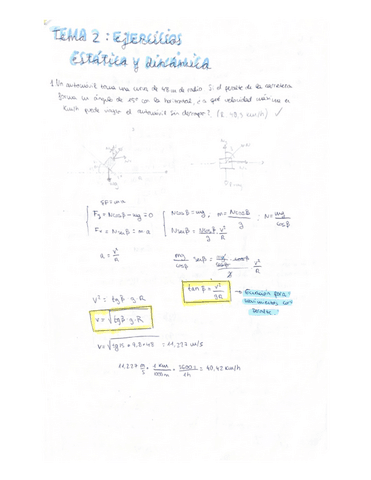 TEMA 2: EJERCICIOS
Estática y dinámica
1. Un automóvil toma una curva de 48 m de radio. Si el peralte de la carretera
forma un ángulo de 15º con la horizontal, ¿a qué velocidad máxima en
km/h puede viajar el automóvil sin derrapar? ✓
ΣF = m·a
Fy = Ncosβ - mg = 0
Fx = Nsinβ = m·a
Ncosβ = mg
m = Ncosβ/g
N = mg/cosβ
Nsinβ = Ncosβ/g · v²/R
a = v²/R
mg/cosβ
sinβ =
v² = tgβ · g · R
tanβ = v²/gR
Ecuación para
movimientos con
peralte
v = √tgβ · g · R
v = √tg15 · 9,8 · 48 = 11,227 m/s
11,227 m/s · 1 km/1000 m · 3600 s/1h = 40,42 km/h